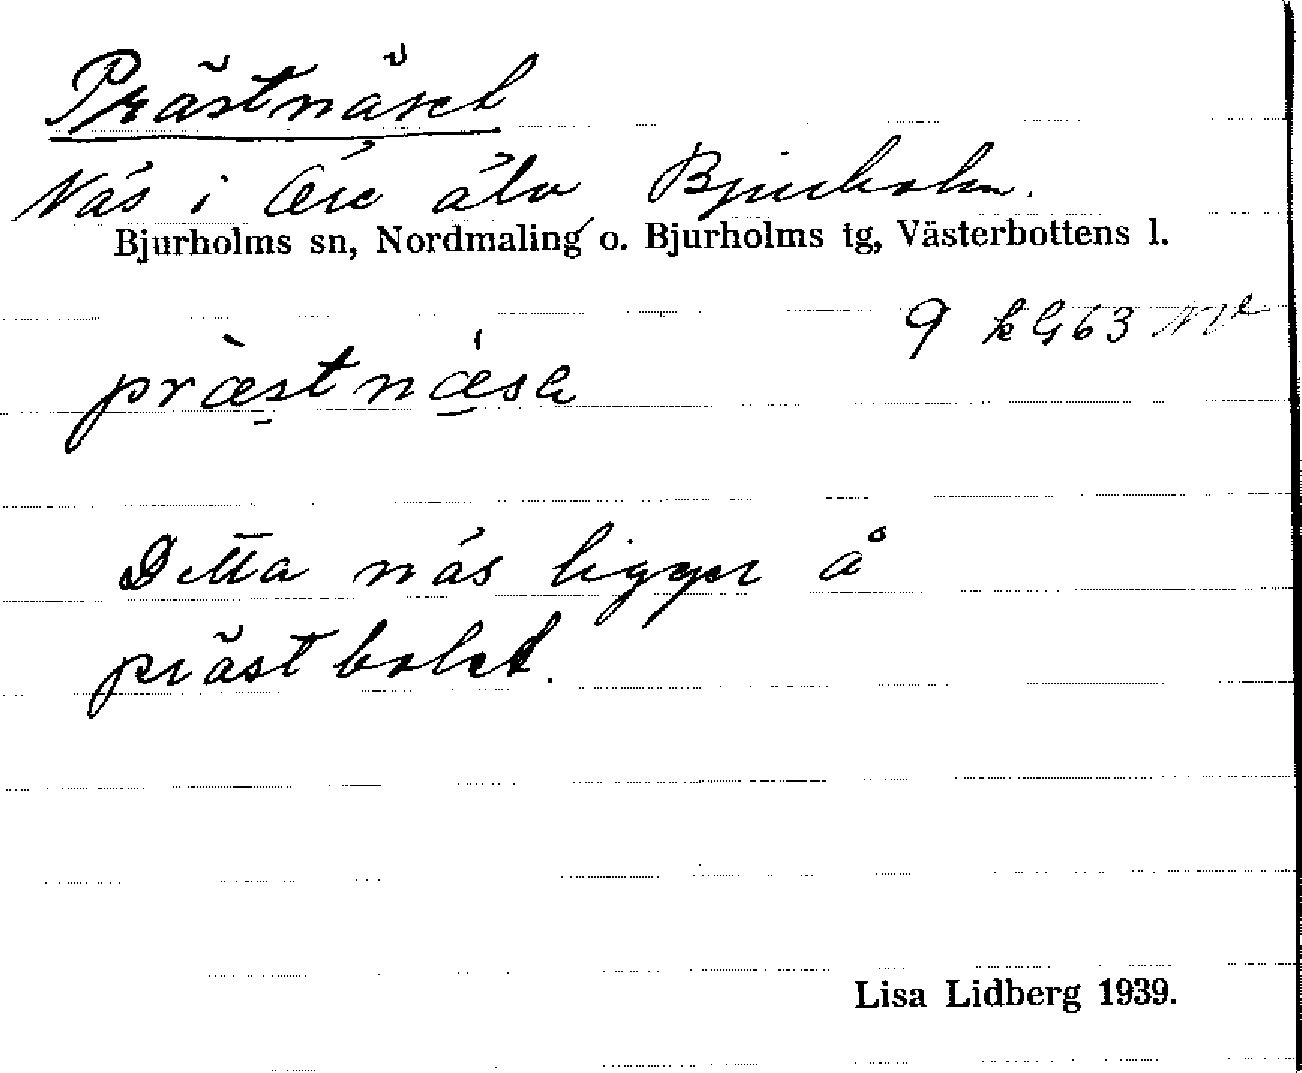 Prästnäset
Näs i Öre älv Bjurholm.
Bjurholms sn, Nordmaling o. Bjurholms tg, Västerbottens l.
9 k G 63
præstnæsɑ
Detta näs ligger å
prästbolet.
Lisa Lidberg 1939.